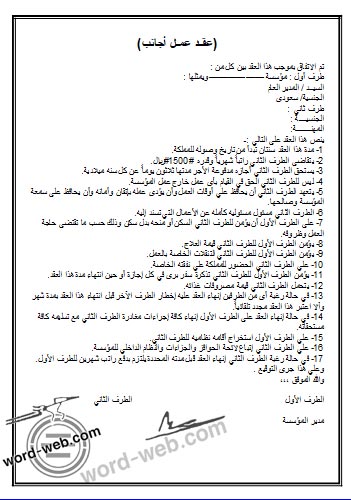 (عقد عمل أجانب)
تم الاتفاق بموجب هذا العقد بين كل من :
طرف أول : مؤسسة ——————— ويمثلها :
السيد / المدير العام
الجنسية/ سعودى
طرف ثاني :
الجنسيـــة :
المهنـــــة:
ينص هذا العقد على التالي :-
1- مدة هذا العقد سنتان تبدأ من تاريخ وصوله للمملكة.
2- يتقاضى الطرف الثاني راتباً شهرياً وقدره #1500#ريال.
3- يستحق الطرف الثاني أجازه مدفوعة الأجر مدتها ثلاثون يوماً عن كل سنه ميلادية.
4- ليس للطرف الثاني الحق في القيام بأى عمل خارج عمل المؤسسة.
5- يتعهد الطرف الثاني بأن يحافظ على أوقات العمل وأن يؤدى عمله بإتقان وأمانه وأن يحافظ على سمعة
المؤسسة وصالحها.
6- الطرف الثاني مسئول مسئوليه كامله عن الأعمال التي تسند إليه.
7- على الطرف الأول أن يؤمن للطرف الثاني السكن أو منحه بدل سكن وذلك حسب ما تقتضى حاجة
العمل وظروفه.
8- يؤمن الطرف الأول للطرف الثاني قيمة العلاج.
9- يؤمن الطرف الأول للطرف الثاني التنقلات الخاصة بالعمل.
10- على الطرف الثاني الحضور للمملكة على نفقته الخاصة.
11- يؤمن الطرف الأول للطرف الثاني تذكرة سفر يرى في كل إجازة أو حين انتهاء مدة هذا العقد.
12- يتحمل الطرف الثاني قيمة مصروفات غذائه.
13- في حالة رغبة أى من الطرفين إنهاء عليه إخطار الطرف الآخر قبل انتهاء هذا العقد بمدة شهر
وألا اعتبر هذا العقد مجدد تلقائياً.
14- في حالة إنهاء العقد على الطرف الأول إنهاء كافة إجراءات مغادرة الطرف الثاني مع تسلمه كافة
مستحقاته.
15- على الطرف الأول استخراج أقامه نظاميه للطرف الثاني.
16- على الطرف الثاني إتباع لائحة الحوافز والجزاءات والنظام الداخلي للمؤسسة.
17- في حالة رغبة الطرف الثاني إنهاء العقد قبل مدته المحددة يلتزم بدفع راتب شهرين للطرف الأول.
وعلي هذا جرى التوقيع .
والله الموفق ،،،
الطرف الأول الطرف الثاني
مدير المؤسسة
word-web.com
word-web.com